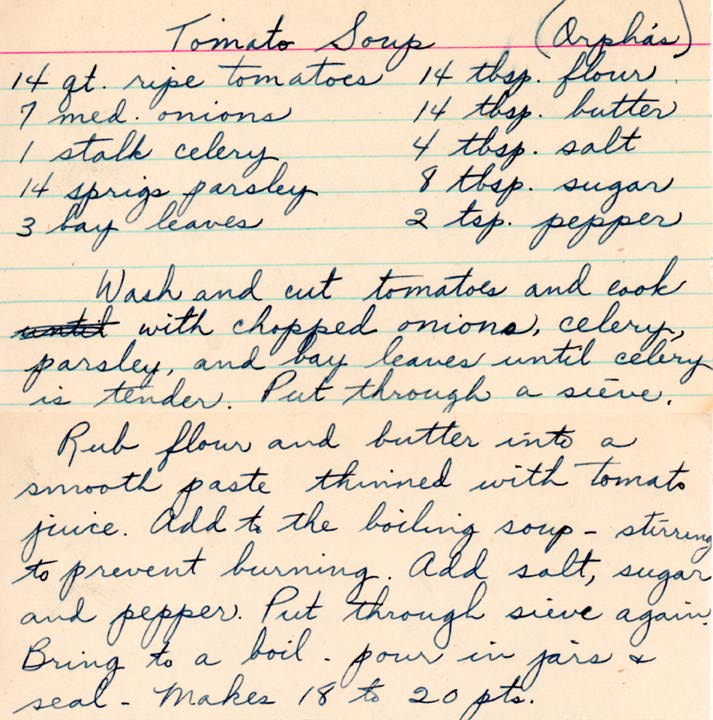 Tomato Soup (Orpha's)
14 qt. ripe tomatoes 14 tbsp. flour
7 med. onions 14 tbsp. butter
1 stalk celery 4 tbsp. salt
14 sprigs parsley 8 tbsp. sugar
3 bay leaves 2 tsp. pepper
Wash and cut tomatoes and cook
until with chopped onions, celery,
parsley, and bay leaves until celery
is tender. Put through a sieve.
Rub flour and butter into a
smooth paste thinned with tomato
juice. Add to the boiling soup - stirring
to prevent burning. Add salt, sugar
and pepper. Put through sieve again.
Bring to a boil - pour in jars &
seal - Makes 18 to 20 pts.